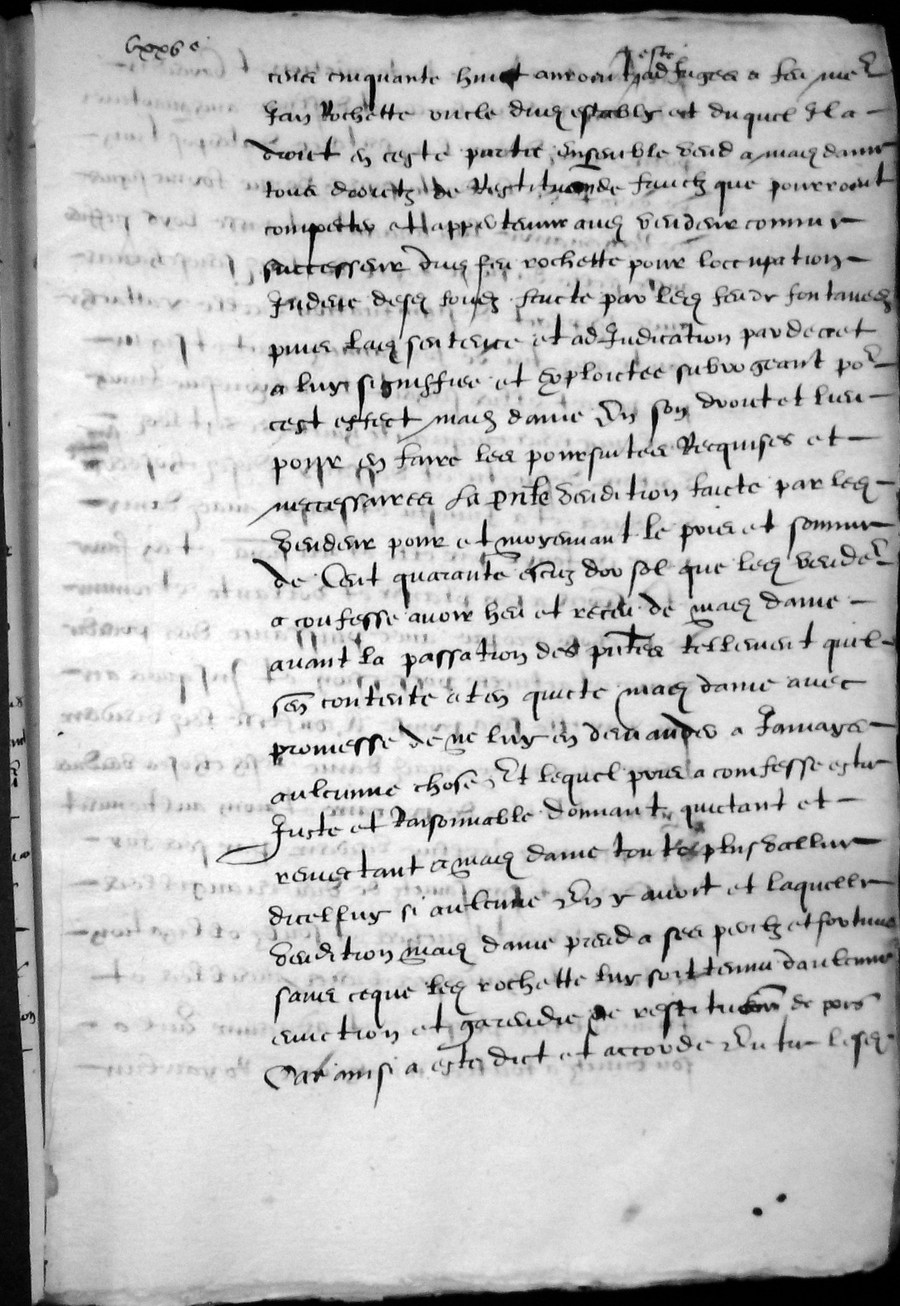 este
cens cinquante huit auroent adjuges a feu me
Jan Rochette oncle dud estably et duquel il a
droict en ceste partie ensemble vend a mad dame
tous droictz de Restitution de fruictz que pourroint
competter et appertenir aud vendeur comme
successeur dud feu rochette pour loccupation
Indeue desd fondz faicte par lesd
puis lad sentence et adIudication par decret
a luy signiffiee et exploictee subrogeant por
cest effect mad dame en son droict et lieu
pour en faire les poursuites Requises et
neccessaires La pnte vendition faicte par led
vendeur pour et moyenant le pris et somme
de Cent quarante escuz dor sol que led vender
a confesse avoir heu et receu de mad dame
avant la passation des pntes tellement quil
sen contente et en quicte mad dame avec
promesse de ne luy en demander a Jamays
aulcunne chose Et lequel pris a confesse estre
Juste et Raisonnable donnant quictant et
remectant a mad dame toute plus vallue
dicelluy si aulcune en y avoit et laquelle
vendition mad dame prend a ses perilz et fortune
sans ceque led rochette luy soit tenu daulcune
eviction et garendie de restitution de pris
Car ainsi a este dict et accorde entre lesd